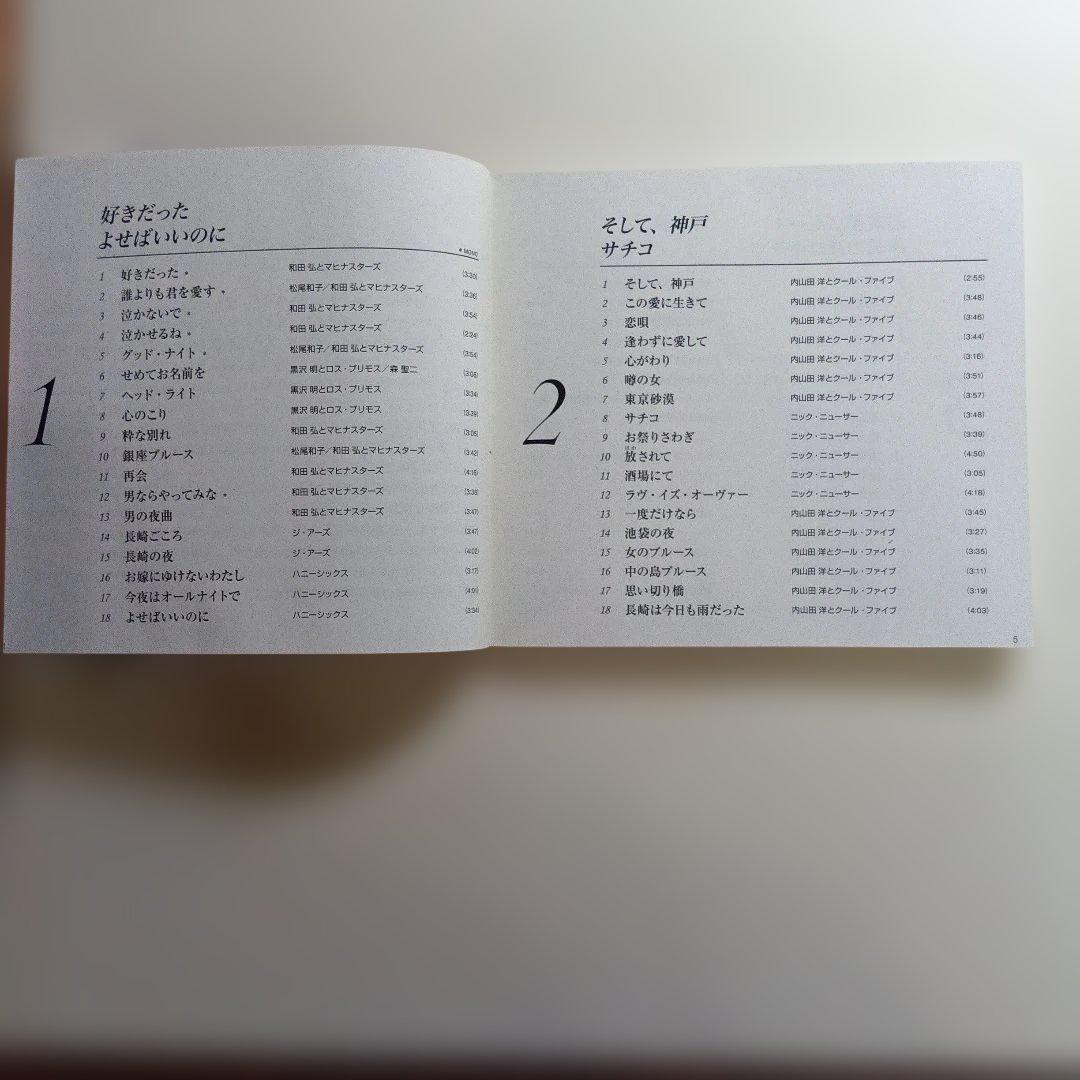 好きだった
よせばいいのに
● MONO
1
1 好きだった ● 和田 弘とマヒナスターズ (3:30)
2 誰よりも君を愛す ● 松尾和子／和田 弘とマヒナスターズ (3:36)
3 泣かないで ● 和田 弘とマヒナスターズ (3:54)
4 泣かせるね ● 和田 弘とマヒナスターズ (2:24)
5 グッド・ナイト ● 松尾和子／和田 弘とマヒナスターズ (3:54)
6 せめてお名前を 黒沢 明とロス・プリモス／森 聖二 (3:08)
7 ヘッド・ライト 黒沢 明とロス・プリモス (3:34)
8 心のこり 黒沢 明とロス・プリモス (3:39)
9 粋な別れ 和田 弘とマヒナスターズ (3:06)
10 銀座ブルース 松尾和子／和田 弘とマヒナスターズ (3:42)
11 再会 和田 弘とマヒナスターズ (4:16)
12 男ならやってみな ● 和田 弘とマヒナスターズ (3:38)
13 男の夜曲 和田 弘とマヒナスターズ (3:47)
14 長崎ごころ ジ・アーズ (3:47)
15 長崎の夜 ジ・アーズ (4:02)
16 お嫁にゆけないわたし ハニーシックス (3:17)
17 今夜はオールナイトで ハニーシックス (4:01)
18 よせばいいのに ハニーシックス (3:34)
そして、神戸
サチコ
2
1 そして、神戸 内山田 洋とクール・ファイブ (2:55)
2 この愛に生きて 内山田 洋とクール・ファイブ (3:48)
3 恋唄 内山田 洋とクール・ファイブ (3:46)
4 逢わずに愛して 内山田 洋とクール・ファイブ (3:44)
5 心がわり 内山田 洋とクール・ファイブ (3:16)
6 噂の女 内山田 洋とクール・ファイブ (3:51)
7 東京砂漠 内山田 洋とクール・ファイブ (3:57)
8 サチコ ニック・ニューサー (3:48)
9 お祭りさわぎ ニック・ニューサー (3:39)
ほか
10 放されて ニック・ニューサー (4:50)
11 酒場にて ニック・ニューサー (3:05)
12 ラヴ・イズ・オーヴァー ニック・ニューサー (4:18)
13 一度だけなら 内山田 洋とクール・ファイブ (3:45)
14 池袋の夜 内山田 洋とクール・ファイブ (3:27)
15 女のブルース 内山田 洋とクール・ファイブ (3:35)
16 中の島ブルース 内山田 洋とクール・ファイブ (3:11)
17 思い切り橋 内山田 洋とクール・ファイブ (3:19)
18 長崎は今日も雨だった 内山田 洋とクール・ファイブ (4:03)
5